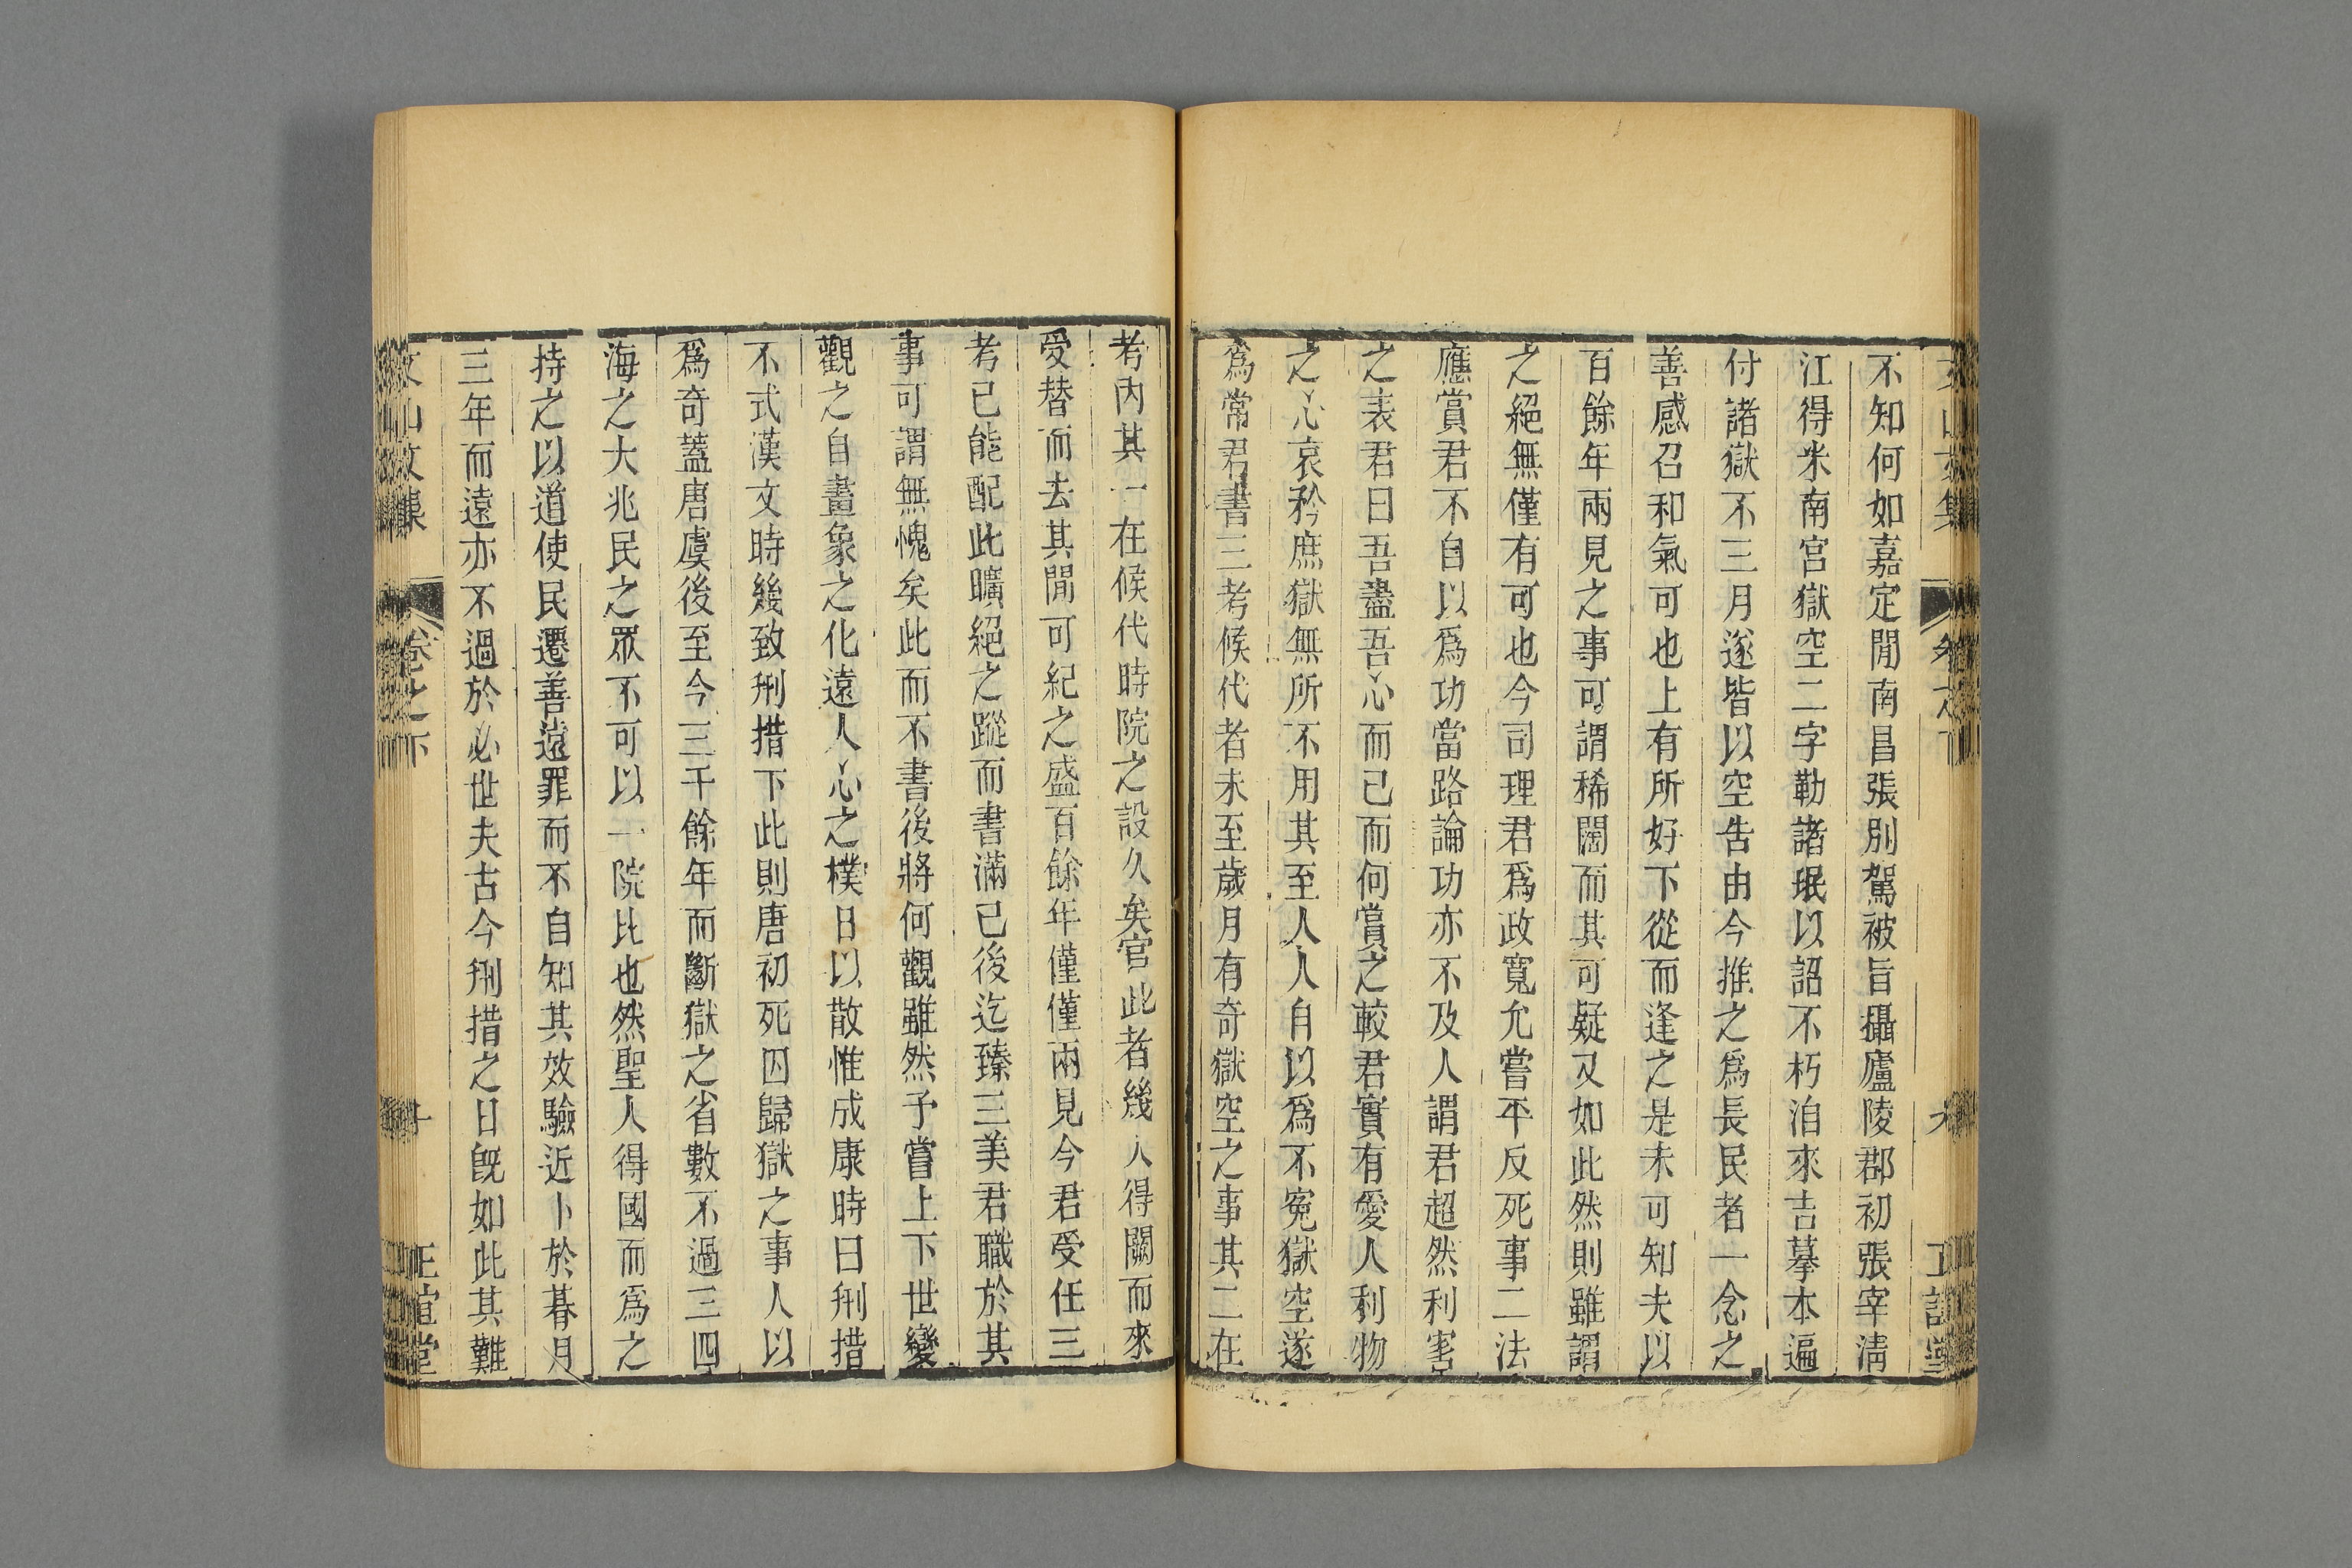 不知何如嘉定閒南昌張別駕被旨攝廬陵郡初張宰淸
江得米南宮獄空二字勒諸珉以詔不朽洎來吉摹本遍
付諸獄不三月遂皆以空告由今推之爲長民者一念之
善感召和氣可也上有所好下從而逢之是未可知夫以
百餘年兩見之事可謂稀闊而其可疑又如此然則雖謂
之絕無僅有可也今司理君爲政寬允嘗平反死事二法
應賞君不自以爲功當路論功亦不及人謂君超然利害
之表君曰吾盡吾心而已而何賞之較君實有愛人利物
之心哀矜庶獄無所不用其至人人自以爲不冤獄空遂
爲常君書三考候代者未至歲月有奇獄空之事其二在
考內其一在候代時院之設久矣官此者幾人得闕而來
受替而去其閒可紀之盛百餘年僅僅兩見今君受任三
考已能配此曠絕之蹤而書滿已後迄臻三美君職於其
事可謂無愧矣此而不書後將何觀雖然予嘗上下世變
觀之自畫象之化遠人心之樸日以散惟成康時曰刑措
不式漢文時幾致刑措下此則唐初死囚歸獄之事人以
爲奇蓋唐虞後至今三千餘年而斷獄之省數不過三四
海之大兆民之眾不可以一院比也然聖人得國而爲之
持之以道使民遷善遠罪而不自知其效驗近卜於朞月
三年而遠亦不過於必世夫古今刑措之日旣如此其難
文山文集
卷之下
十
正誼堂